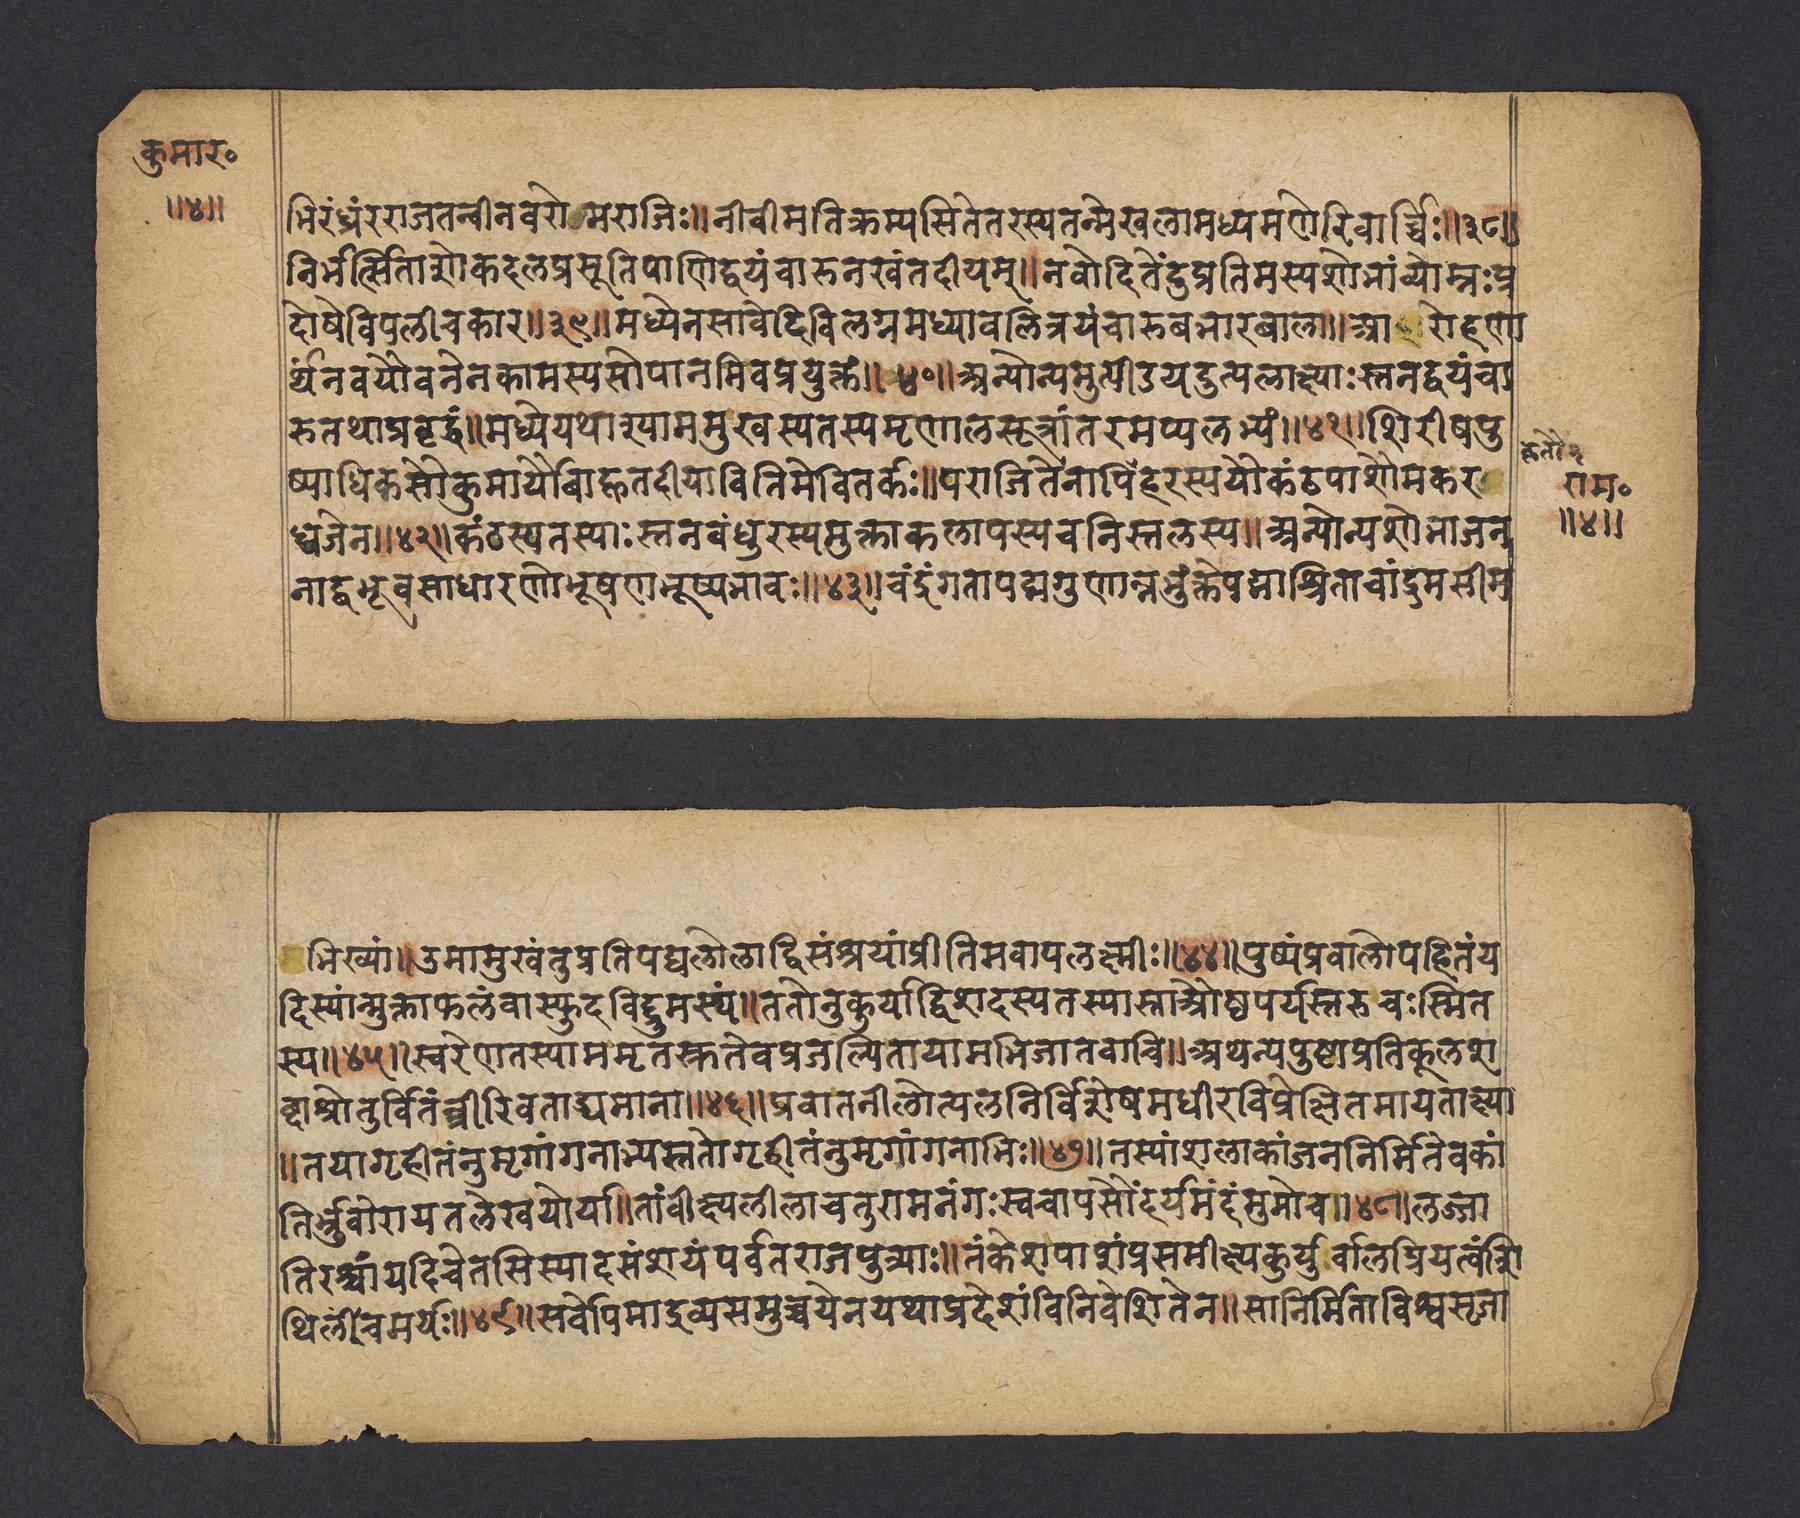 कुमार॰
॥४॥
भिरंध्रंरराजतन्वीनवरोमराजिः॥नीवीमतिक्रम्यसितेतरस्यतन्मेखलामध्यमणेरिवार्च्चिः॥३८॥
निर्भर्त्सिताशोकदलप्रसूतिपाणिद्वयंचारुनखंतदीयम्॥नवोदितेंदुप्रतिमस्यशोभांव्योम्नःप्र
दोषेविफलीचकार॥३९॥मध्येनसावेदिविलग्नमध्यावलित्रयंचारुबभारबाला॥आरोहणा
र्थंनवयौवनेनकामस्यसोपानमिवप्रयुक्तं॥४०॥अन्योन्यमुत्पीडयदुत्पलाक्ष्याःस्तनद्वयंचा
रुतथाप्रवृद्धं॥मध्येयथाश्याममुखस्यतस्यमृणालसूत्रांतरमप्यलभ्यं॥४१॥शिरीषपु
ष्पाधिकसौकुमार्यौबाहूतदीयावितिमेवितर्कः॥पराजितेनापिहरस्ययौकंठपाशौमकर
कृतौ
राम॰
॥४॥
ध्वजेन॥४२॥कंठस्यतस्याःस्तनबंधुरस्यमुक्ताकलापस्यचनिस्तलस्य॥अन्योन्यशोभाजन
नाद्बभूवसाधारणोभूषणभूष्यभावः॥४३॥चंद्रंगतापद्मगुणान्नभुंक्तेपद्माश्रिताचांद्रमसीम
भिख्यां॥उमामुखंतुप्रतिपद्यलोलाद्विसंश्रयांप्रीतिमवापलक्ष्मीः॥४४॥पुष्पंप्रवालोपहितंय
दिस्यान्मुक्ताफलंवास्फुटविद्रुमस्थं॥ततोनुकुर्याद्विशदस्यतस्यास्ताम्रौष्ठपर्यस्तरुचःस्मित
स्य॥४५॥स्वरेणतस्याममृतस्रुतेवप्रजल्पितायामभिजातवाचि॥अथन्यपुष्टाप्रतिकूलश
ब्दाश्रोतुर्वितंत्रीरिवताड्यमाना॥४६॥प्रवातनीलोत्पलनिर्विशेषमधीरविप्रेक्षितमायताक्ष्या
॥तयागृहीतंनुमृगांगनाभ्यस्ततोगृहीतंनुमृगांगनाभिः॥४७॥तस्यांशलाकांजननिर्मितेवकां
तिर्भ्रुवोरायतलेखयोर्या॥तांवीक्ष्यलीलाचतुरामनंगःस्वचापसौंदर्यमदंमुमोच॥४८॥लज्जा
तिरश्चांयदिचेतसिस्यादसंशयंपर्वतराजपुत्र्याः॥तंकेशपाशंप्रसमीक्ष्यकुर्युर्वालप्रियत्वंशि
थिलंचमर्यः॥४९॥सर्वोपमाद्रव्यसमुच्चयेनयथाप्रदेशंविनिवेशितेन॥सानिर्मिताविश्वसृजा